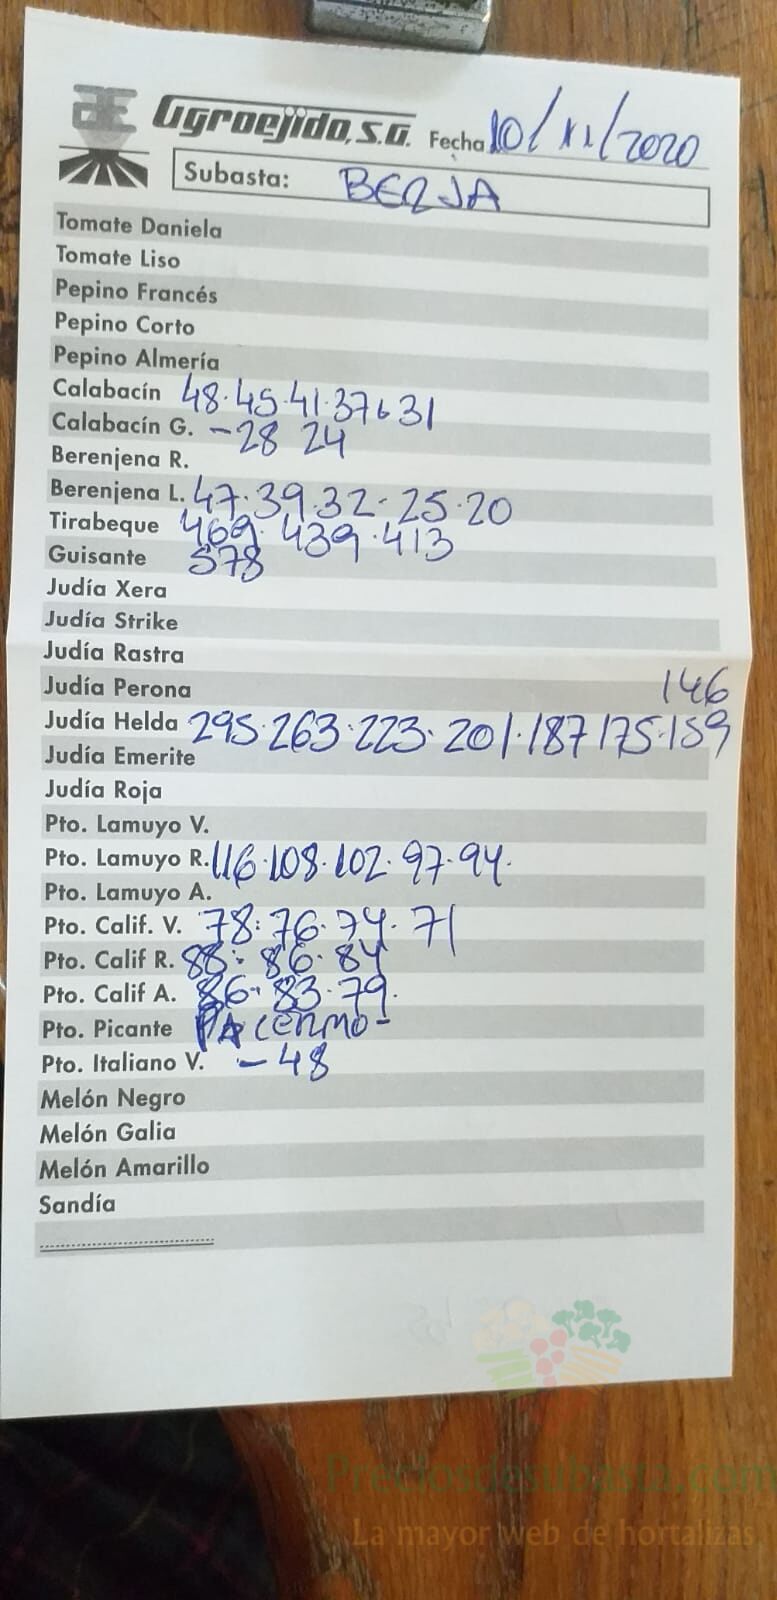 Agroejido, S.A. Fecha 10/XI/2020
Subasta: BERJA
Tomate Daniela
Tomate Liso
Pepino Francés
Pepino Corto
Pepino Almería
Calabacín 48.45.41.37 31
Calabacín G. -28 24
Berenjena R.
Berenjena L. 47.39.32-25.20
Tirabeque 469.439.413
Guisante 578
Judía Xera
Judía Strike
Judía Rastra
Judía Perona 146
Judía Helda 295.263.223.201.187 175.159
Judía Emerite
Judía Roja
Pto. Lamuyo V.
Pto. Lamuyo R. 116.108.102.97.94.
Pto. Lamuyo A.
Pto. Calif. V. 78.76.74.71
Pto. Calif R. 88.86.84
Pto. Calif A. 86.83.79.
Pto. Picante PALERMO-
Pto. Italiano V. -48
Melón Negro
Melón Galia
Melón Amarillo
Sandía
Preciosdesubasta.com
La mayor web de hortalizas.